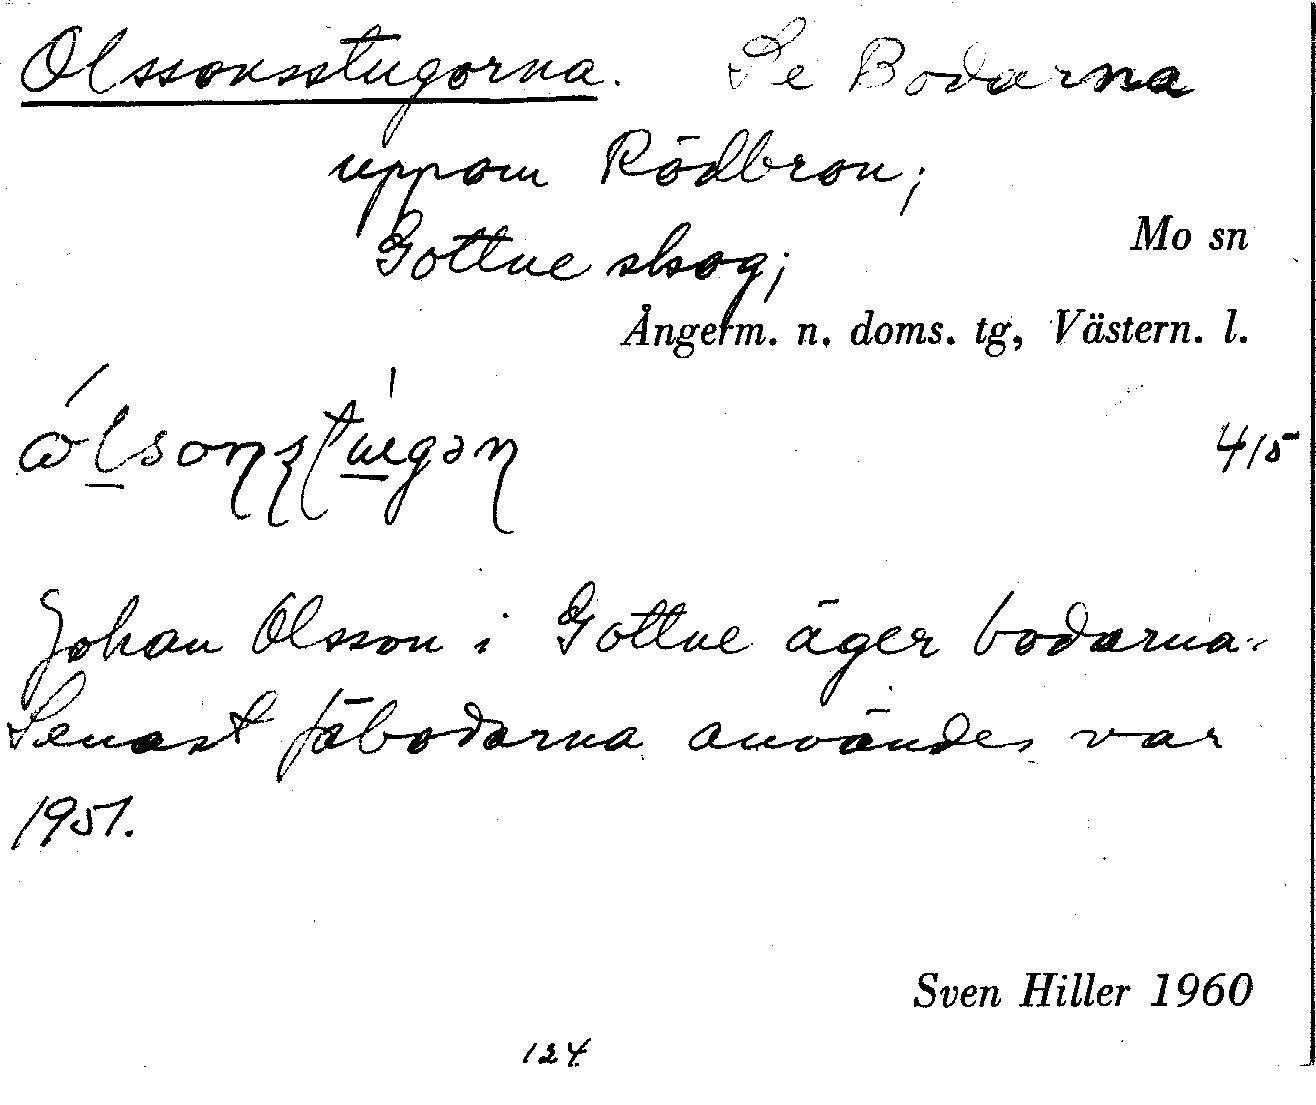 Olssonsstugorna. Se Bodarna
uppom Rödbron;
Gottne skog;
Mo sn
Ångerm. n. doms. tg, Västern. l.
4/5
Johan Olsson i Gottne äger bodarna.
Senast fäbodarna användes var
1951.
Sven Hiller 1960
124